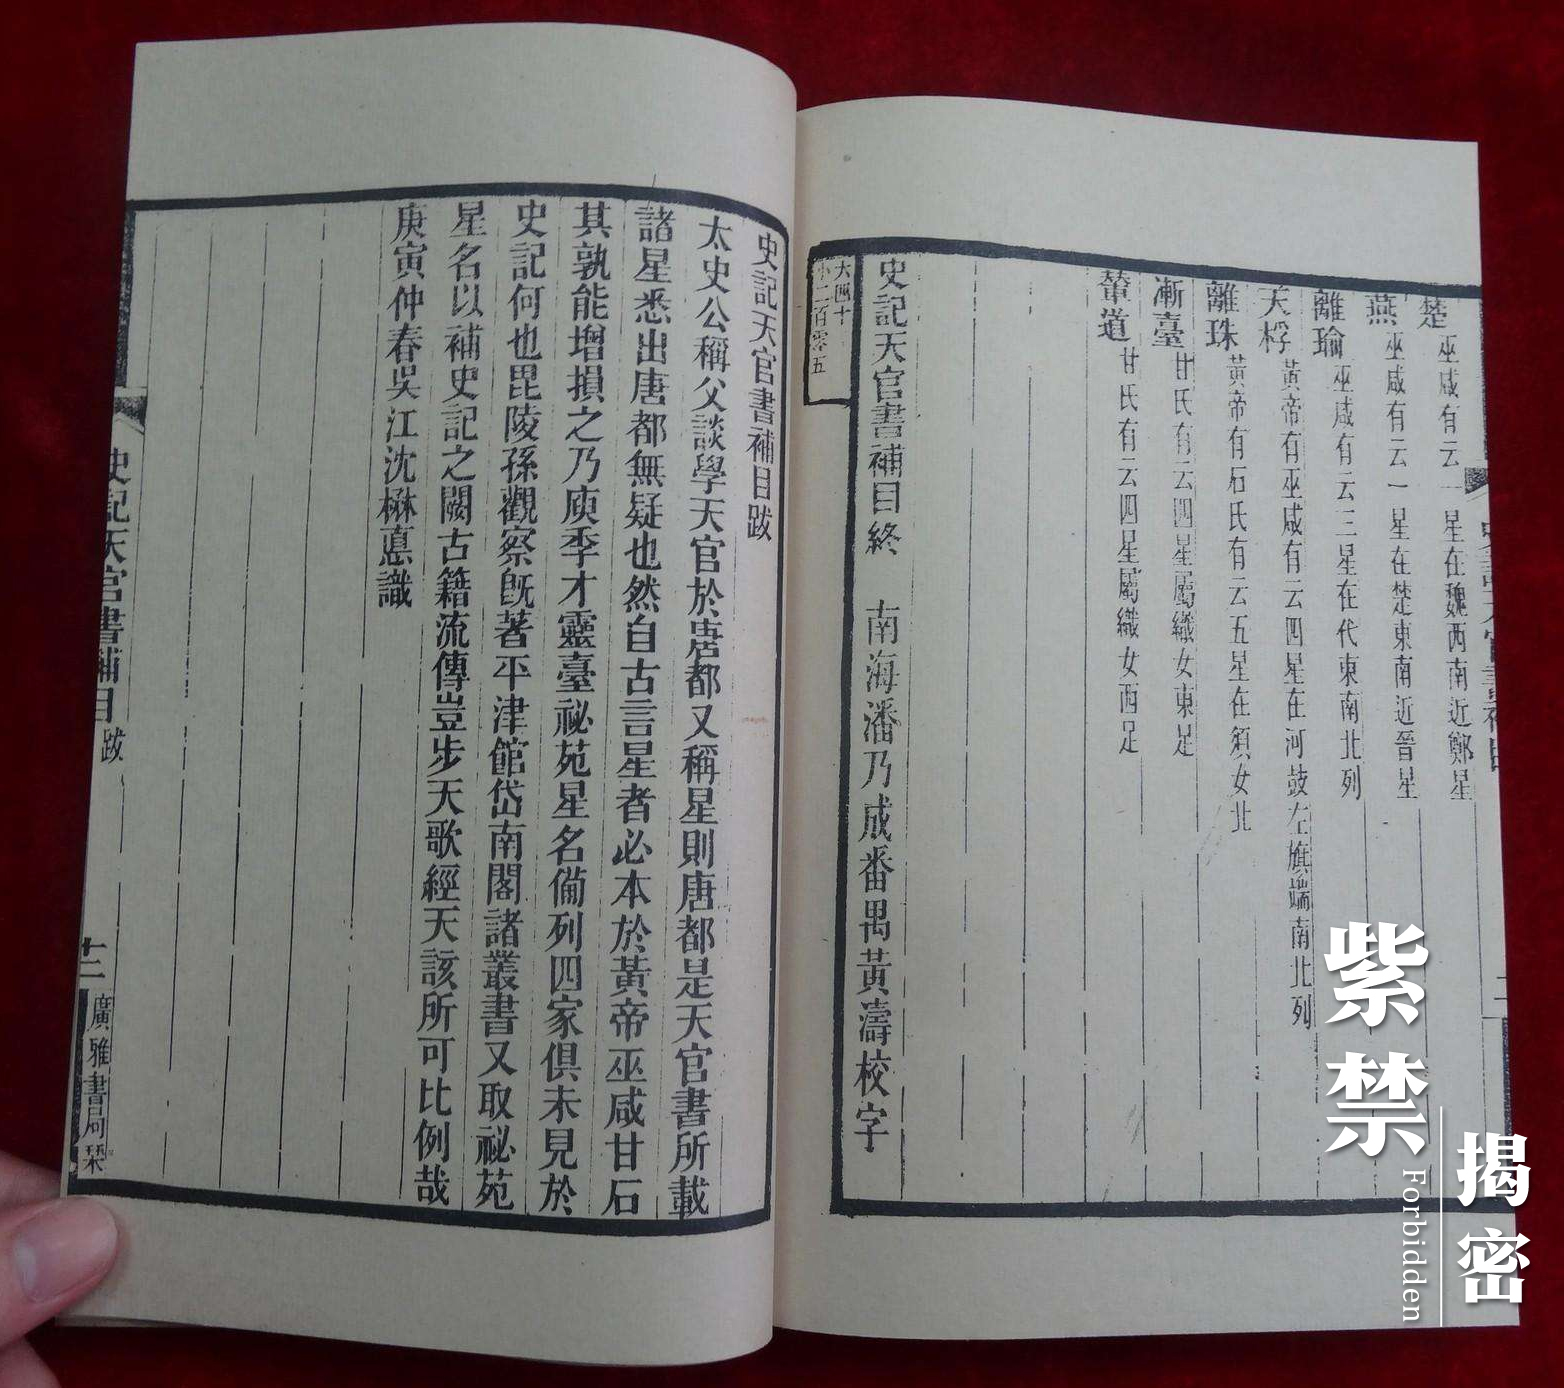 楚
巫咸有云一星在魏西南近鄭星
燕
巫咸有云一星在楚東南近晉星
離瑜
巫咸有云三星在代東南北列
天桴
黃帝有巫咸有云四星在河鼓左旗端南北列
離珠
黃帝有石氏有云五星在須女北
漸臺
甘氏有云四星屬織女東足
輦道
甘氏有云四星屬織女西足
史記天官書補目終　南海潘乃成番禺黃濤校字
大四十
小二百零五
史記天官書補目跋
太史公稱父談學天官於唐都又稱星則唐都是天官書所載
諸星悉出唐都無疑也然自古言星者必本於黃帝巫咸甘石
其孰能增損之乃庾季才靈臺祕苑星名備列四家俱未見於
史記何也毘陵孫觀察旣著平津館岱南閣諸叢書又取祕苑
星名以補史記之闕古籍流傳豈步天歌經天該所可比例哉
庚寅仲春吳江沈楙惪識
史記天官書補目跋
十二
廣雅書局栞
紫禁
揭密
Forbidden